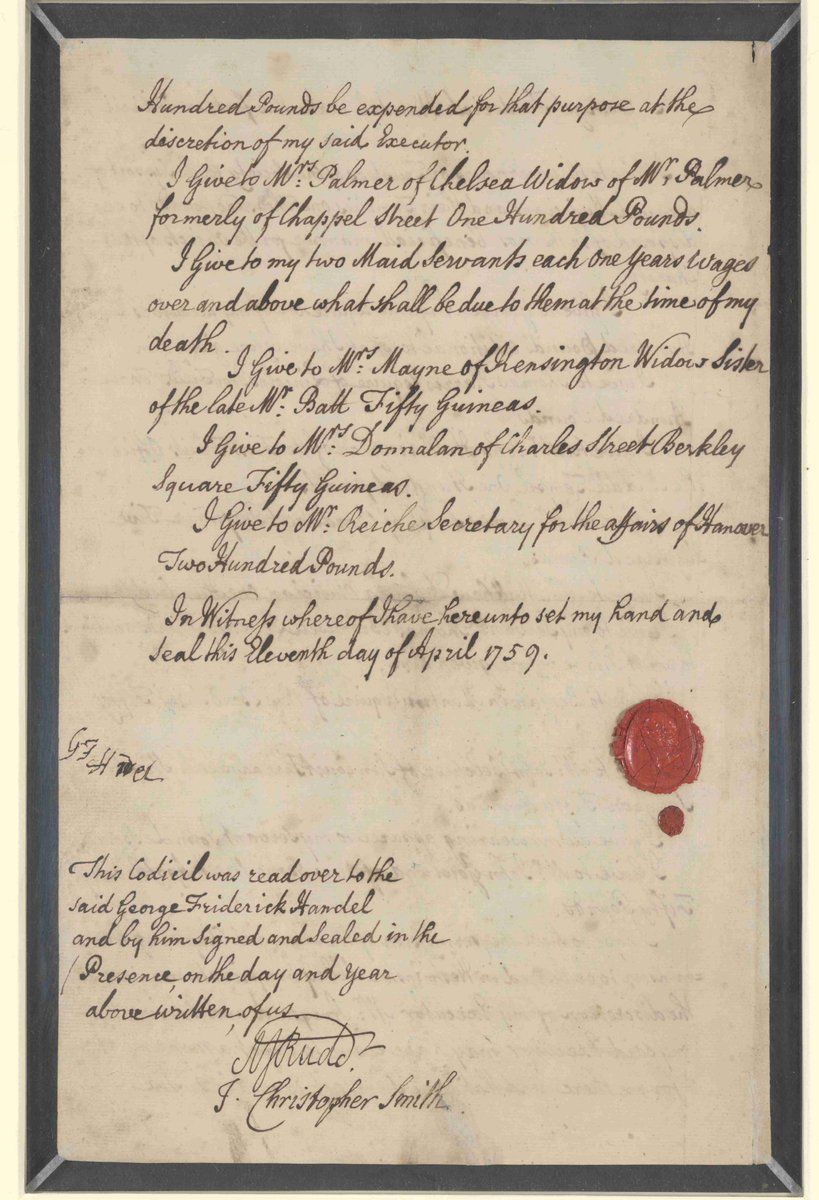 Hundred Pounds be expended for that purpose at the
discretion of my said Executor.
I Give to Mrs. Palmer of Chelsea Widow of Mr. Palmer
formerly of Chappel Street One Hundred Pounds.
I Give to my two Maid Servants each One Years Wages
over and above what shall be due to them at the time of my
death.
I Give to Mrs. Mayne of Kensington Widow Sister
of the late Mr. Batt Fifty Guineas.
I Give to Mrs. Donnalan of Charles Street Berkley
Square Fifty Guineas.
I Give to Mr. Reiche Secretary for the affairs of Hanover
Two Hundred Pounds.
In Witneſs whereof I have hereunto set my hand and
seal this Eleventh day of April 1759.
G F
This Codicil was read over to the
said George Friderick Handel
and by him Signed and Sealed in the
Presence, on the day and Year
above written, of us.
Rudd.
J. Christopher Smith.